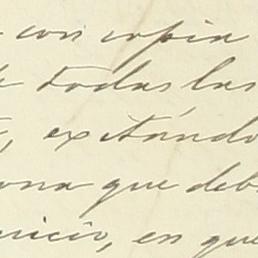 con copia
todas las
excitándo
ona que deb
uicio, en que